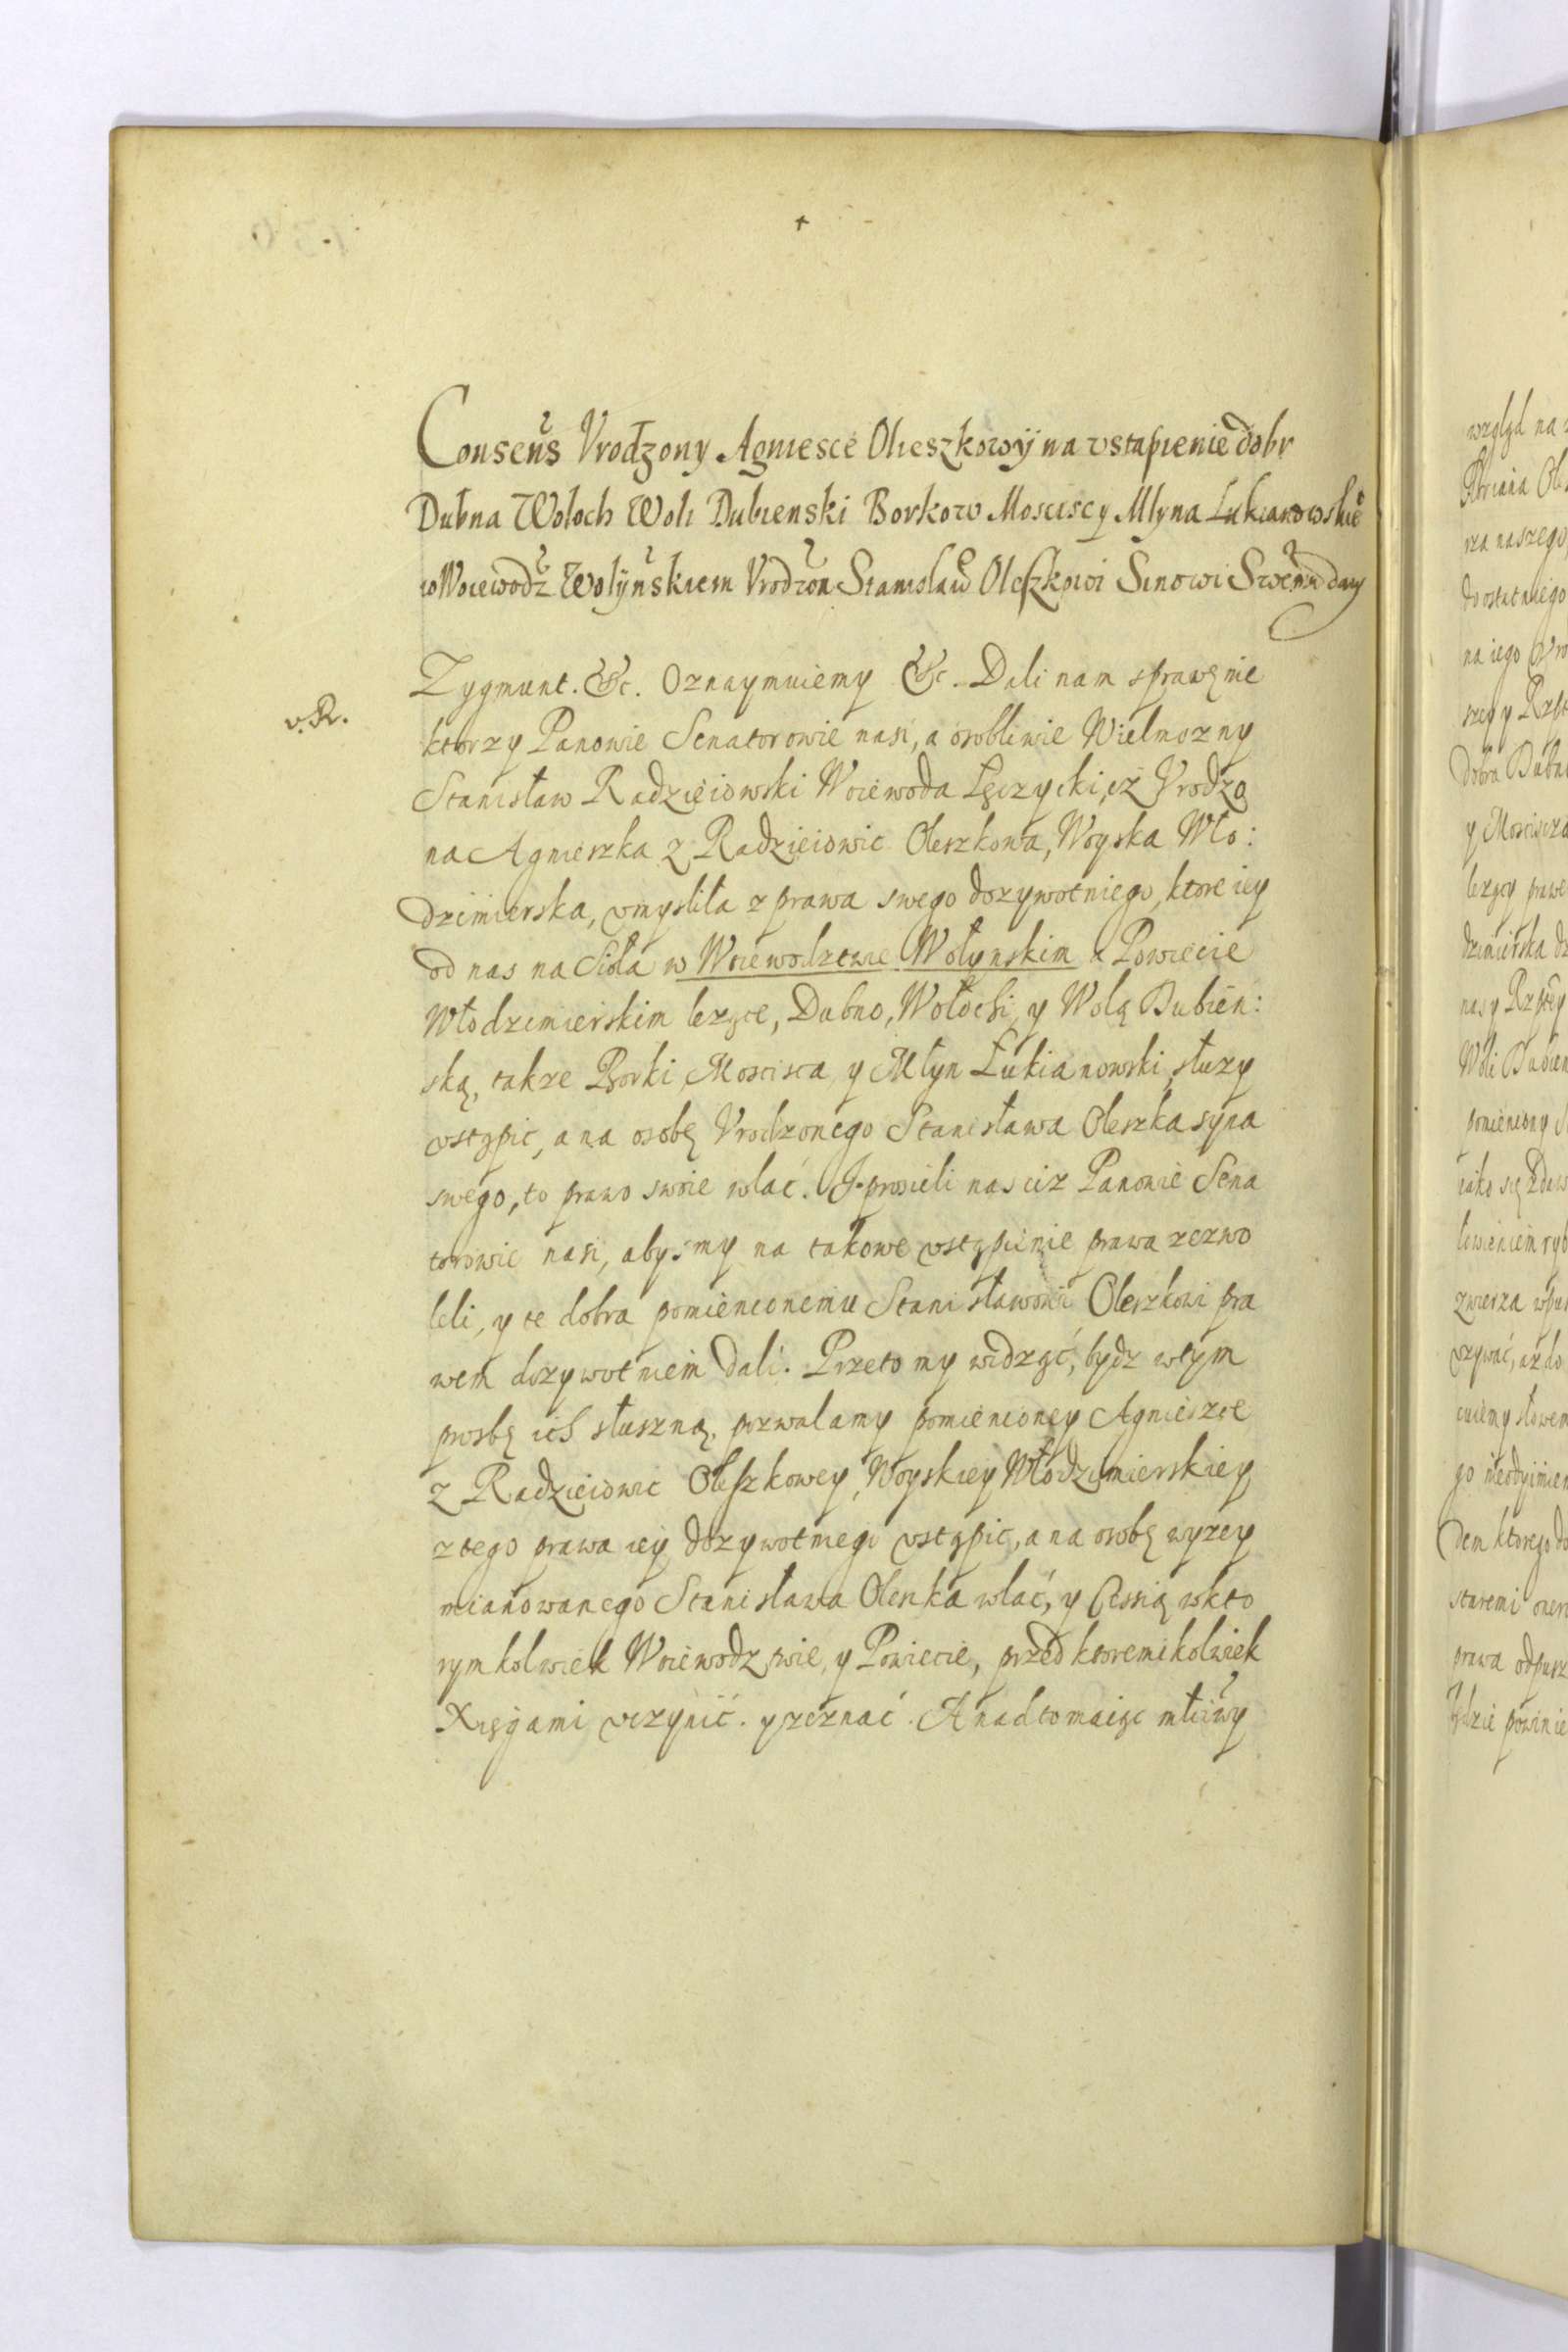 +
Consens Vrodzony Agniesce Olieszkowÿ na vstąpienie dobr
Dubna Woloch Woli Dubienski Borkow Moscisey Młyna Lukianowskie
w Woiewodz Wolÿnskiem Vrodzon Stanisław Oleszkowi Sinowi Swemu dany
v. R.
Zygmunt. &c. Oznaymuiemy &c. Dali nam sprawę nie
ktorzy Panowie Senatorowie nasi, a osobliwie Wielmozny
Stanisław Radzieiowski Woiewoda Lęczycki, iż Vrodzo
na Agnieszka z Radzieiowic Oleszkowa, Woyska Wło:
dzimierska, vmysliła z prawa swego dozywotniego, ktore iey
od nas na Sioła w Woiewodztwie Wołynskim a Powiecie
Włodzimierskim lezące, Dubno, Wołochi, y Wolą Dubień:
ską, takze Borki, Moscisca, y Młyn Łukianowski, słuzy
vstąpic, a na osobę Vrodzonego Stanisława Oleszka syna
swego, to prawo swoie wlać. I prosieli nas ciz Panowie Sena
torowie nasi, abyśmy na takowe vstąpienie prawa zezwo
leli, y te dobra pomienionemu Stanisławowi Oleszkowi pra
wem dozywotniem dali. Przeto my widząć, bydz w tym
prosbę ich słuszną, pozwalamy pomienioney Agnieszce
z Radzieiowic Oleszkowey, Woyskiey Włodzimierskiey
z tego prawa iey dozywotniego vstąpic, a na osobę wyzey
mianowanego Stanisława Oleszka wlać, y Cessią w kto
rymkolwiek Woiewodztwie, y Powiecie, przed ktoremikolwiek
Xięgami vczynić. y zeznać. A nadto maiąc młciwy
wzgląd na
rza naszego
do ostatniego
na iego Vro
dobra Dubn
y Moscisca
lezący prawe
dzimirska
Woli Dubien
pomieniony
iako się
zwierza
vzywać, az do
cuiemy słowem
dem ktorego do
staremi
prawa odpusz
powinie